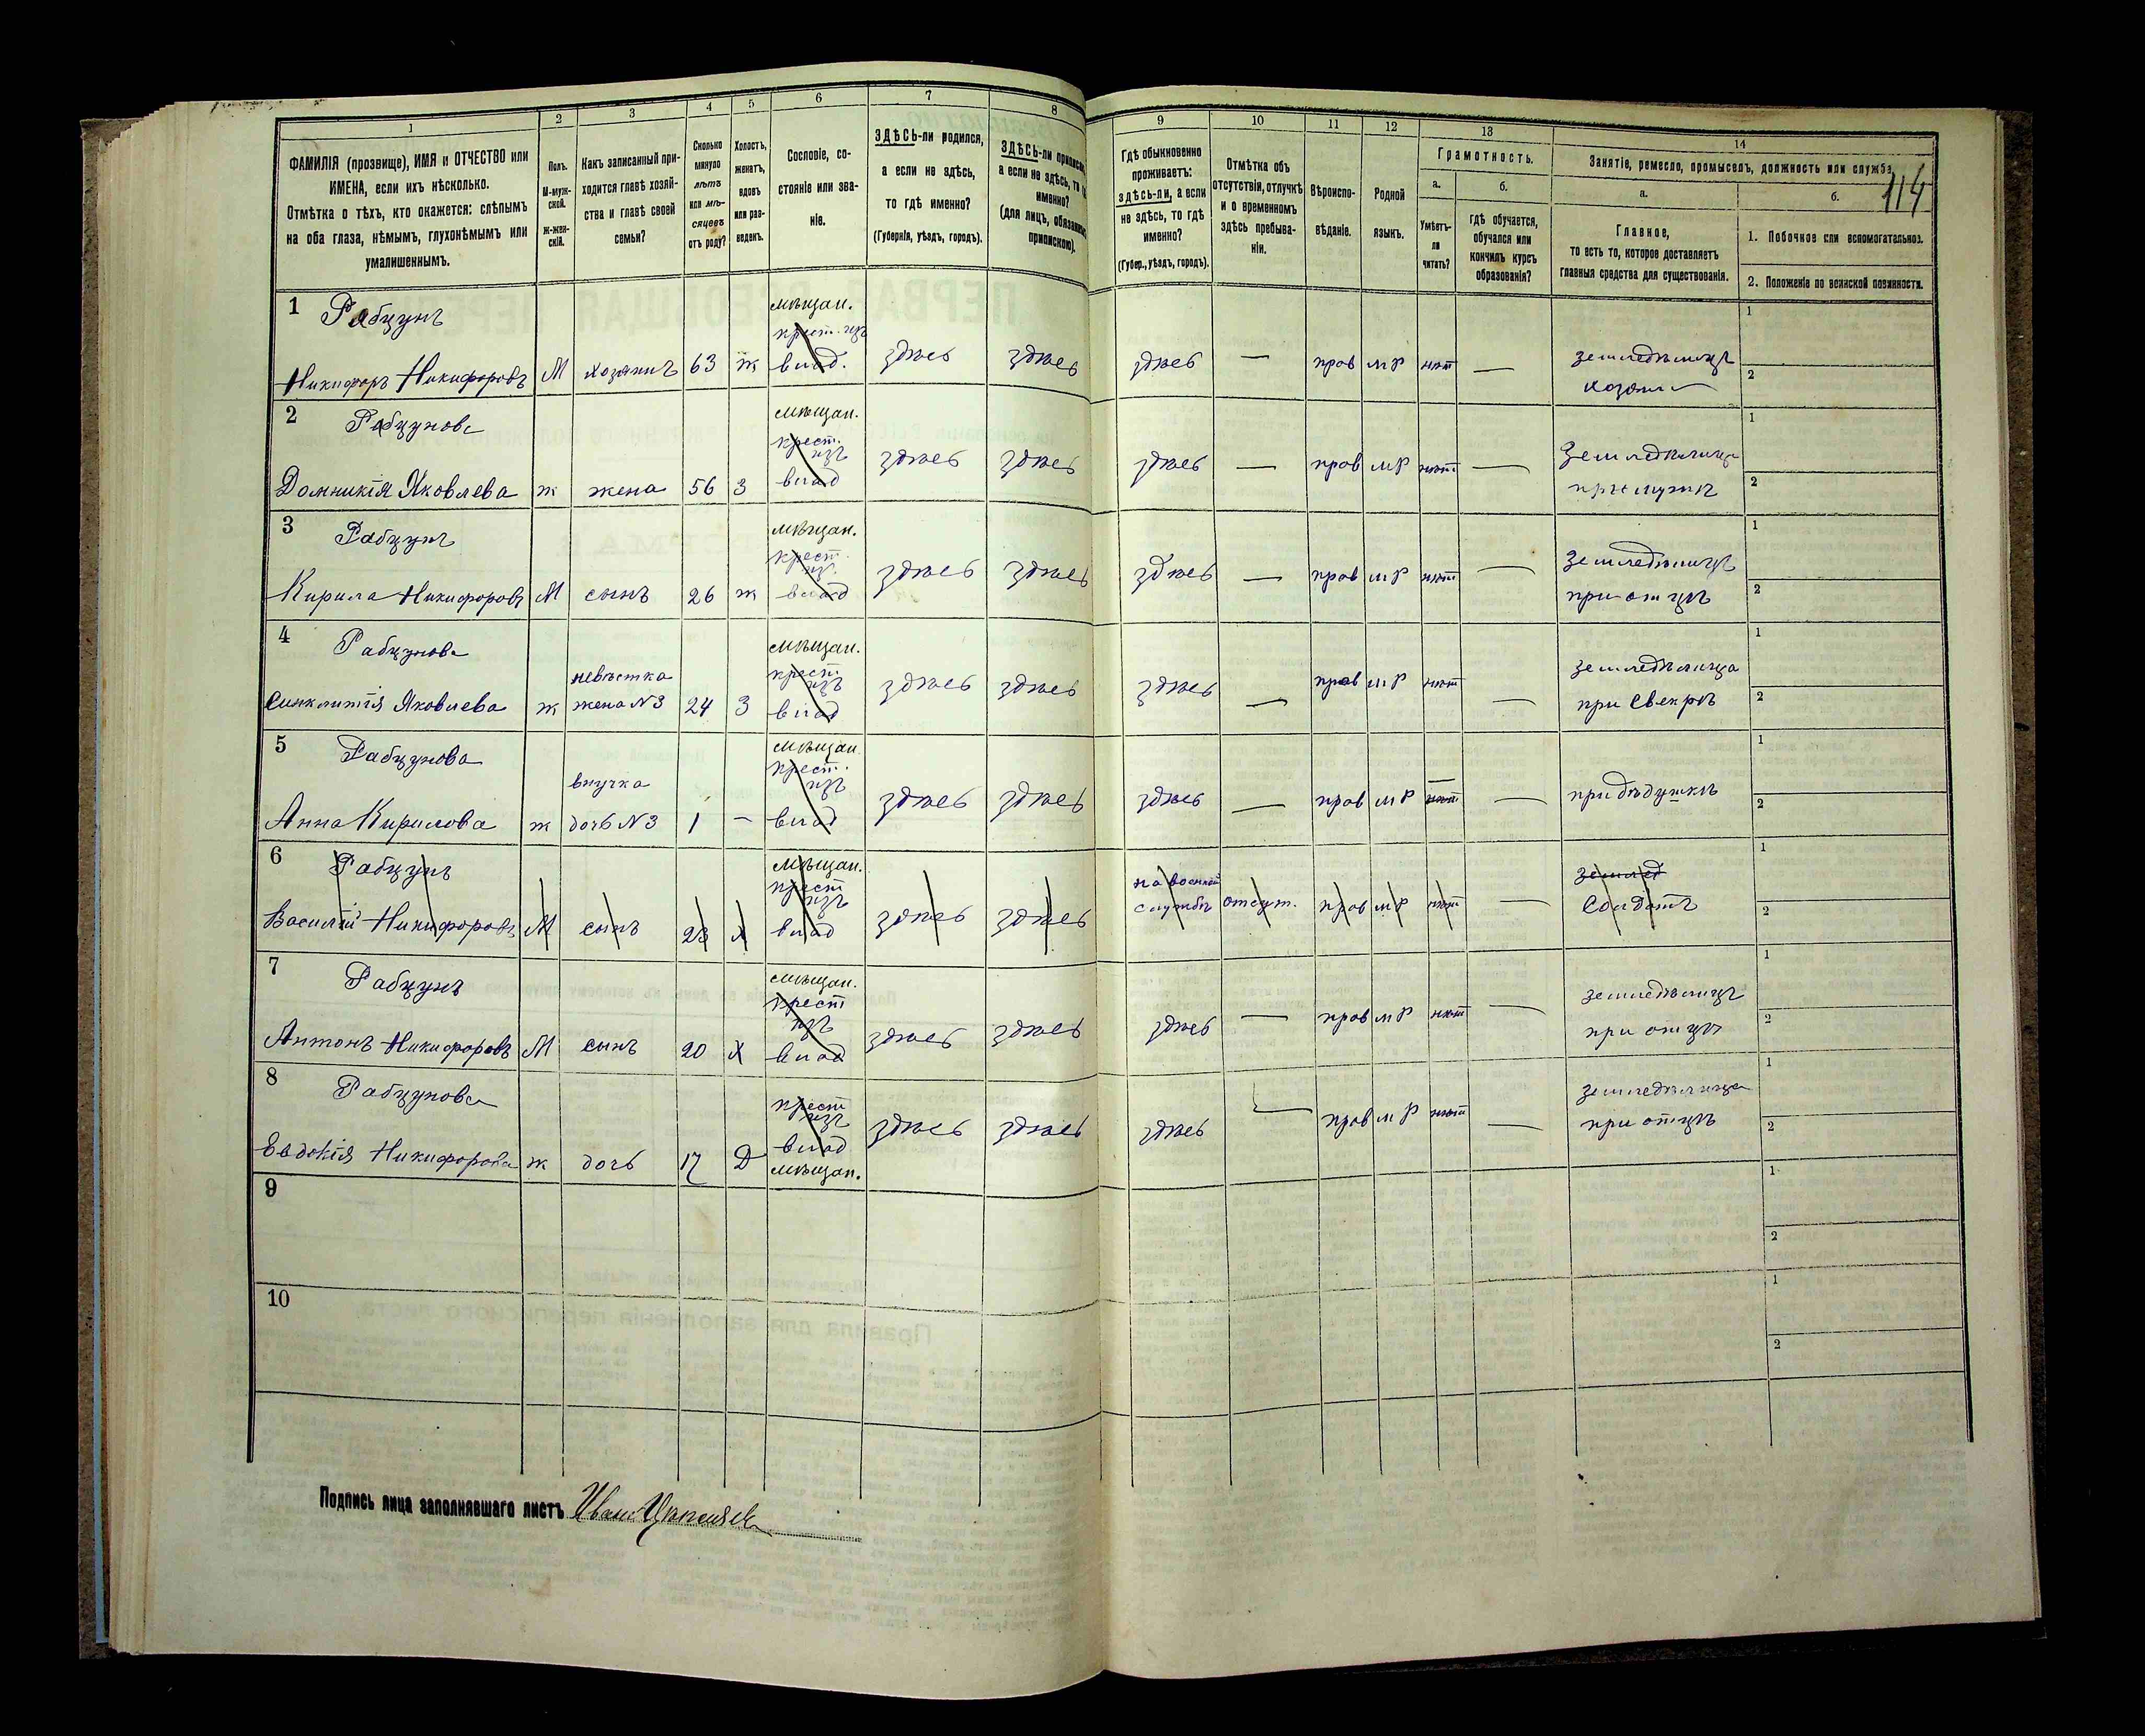 1 2 3 4 5 6 7 8
ФАМИЛІЯ (прозвище), ИМЯ и ОТЧЕСТВО или ИМЕНА, если ихъ нѣсколько.
Отмѣтка о тѣхъ, кто окажется: слѣпымъ на оба глаза, нѣмымъ, глухонѣмымъ или умалишеннымъ.
Полъ. М-мужской. Ж-женскій.
Какъ записанный приходится главѣ хозяйства и главѣ своей семьи?
Сколько минуло лѣтъ или мѣсяцевъ отъ роду?
Холостъ, женатъ, вдовъ или разведенъ.
Сословіе, состояніе или званіе.
ЗДѢСЬ-ли родился, а если не здѣсь, то гдѣ именно? (Губернія, уѣздъ, городъ).
ЗДѢСЬ-ли приписан, а если не здѣсь, то именно? (для лицъ, обязанн припискою).
9 10 11 12 13 14
114
Гдѣ обыкновенно проживаетъ: здѣсь-ли, а если не здѣсь, то гдѣ именно? (Губер., уѣздъ, городъ).
Отмѣтка объ отсутствіи, отлучкѣ и о временномъ здѣсь пребываніи.
Вѣроисповѣданіе.
Родной языкъ.
Грамотность.
а. Умѣетъ-ли читать?
б. гдѣ обучается, обучался или кончилъ курсъ образованія?
Занятіе, ремесло, промыселъ, должность или служба
а. Главное, то есть то, которое доставляетъ главныя средства для существованія.
б.
1. Побочное или вспомогательное.
2. Положеніе по воинской повинности.
1 Рабцунъ мѣщан. крест. изъ 1
Никифоръ Никифоровъ М хозяинъ 63 ж влад. здѣсь здѣсь здѣсь — прав МР нѣт — земледѣлецъ хозяин 2
2 Рабцунова мѣщан. крест. изъ 1
Домникія Яковлева ж жена 56 З влад здѣсь здѣсь здѣсь — прав МР нѣт — земледѣлица при мужѣ 2
3 Рабцунъ мѣщан. крест. изъ 1
Кирила Никифоровъ М сынъ 26 ж влад здѣсь здѣсь здѣсь — прав МР нѣт — земледѣлецъ при отцѣ 2
4 Рабцунова невѣстка мѣщан. крест. изъ 1
Синклитія Яковлева ж жена №3 24 З влад здѣсь здѣсь здѣсь — прав МР нѣт — земледѣлица при свекрѣ 2
5 Рабцунова внучка мѣщан. крест. изъ 1
Анна Кирилова ж дочь №3 1 — влад здѣсь здѣсь здѣсь — прав МР — нѣт — при дѣдушкѣ 2
6 Рабцунъ мѣщан. крест изъ 1
Василій Никифоровъ М сынъ 23 Х влад здѣсь здѣсь на военной службѣ отсут. прав МР нѣт — землед Солдатъ 2
7 Рабцунъ мѣщан. крест изъ 1
Антонъ Никифоровъ М сынъ 20 Х влад здѣсь здѣсь здѣсь — прав МР нѣт — земледѣлецъ при отцѣ 2
8 Рабцунова крест изъ 1
Евдокія Никифорова ж дочь 17 Д влад мѣщан. здѣсь здѣсь здѣсь — прав МР нѣт — земледѣлица при отцѣ 2
9 1
2
10 1
2
Подпись лица заполнявшаго листъ Иван